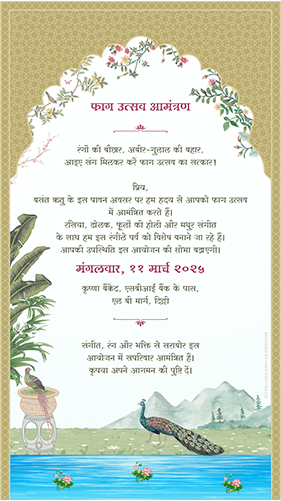 फाग उत्सव आमंत्रण
रंगों की बौछार, अबीर-गुलाल की बहार,
आइए संग मिलकर करें फाग उत्सव का सत्कार!
प्रिय,
बसंत ऋतु के इस पावन अवसर पर हम हृदय से आपको फाग उत्सव
में आमंत्रित करते हैं।
रसिया, ढोलक, फूलों की होली और मधुर संगीत
के साथ हम इस रंगीले पर्व को विशेष बनाने जा रहे हैं।
आपकी उपस्थिति इस आयोजन की शोभा बढ़ाएगी।
मंगलवार, ११ मार्च २०२५
कृष्णा बैंकेट, एसबीआई बैंक के पास,
एल बी मार्ग, दिल्ली
संगीत, रंग और भक्ति से सराबोर इस
आयोजन में सपरिवार आमंत्रित हैं।
कृपया अपने आगमन की पुष्टि दें।